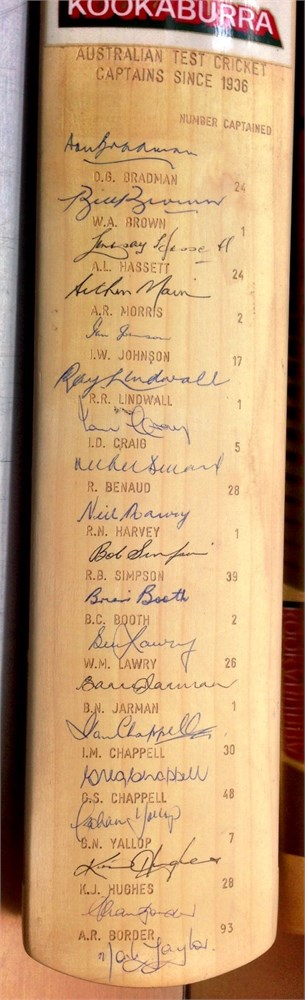 KOOKABURRA
AUSTRALIAN TEST CRICKET
CAPTAINS SINCE 1936
NUMBER CAPTAINED
Don Bradman
D.G. BRADMAN 24
Bill Brown
W.A. BROWN 1
Lindsay Hassett
A.L. HASSETT 24
Arthur Morris
A.R. MORRIS 2
Ian Johnson
I.W. JOHNSON 17
Ray Lindwall
R.R. LINDWALL 1
Ian Craig
I.D. CRAIG 5
Richie Benaud
R. BENAUD 28
Neil Harvey
R.N. HARVEY 1
Bob Simpson
R.B. SIMPSON 39
Brian Booth
B.C. BOOTH 2
Bill Lawry
W.M. LAWRY 26
Barry Jarman
B.N. JARMAN 1
Ian Chappell
I.M. CHAPPELL 30
Greg Chappell
G.S. CHAPPELL 48
Graham Yallop
G.N. YALLOP 7
Kim Hughes
K.J. HUGHES 28
Allan Border
A.R. BORDER 93
Mark Taylor